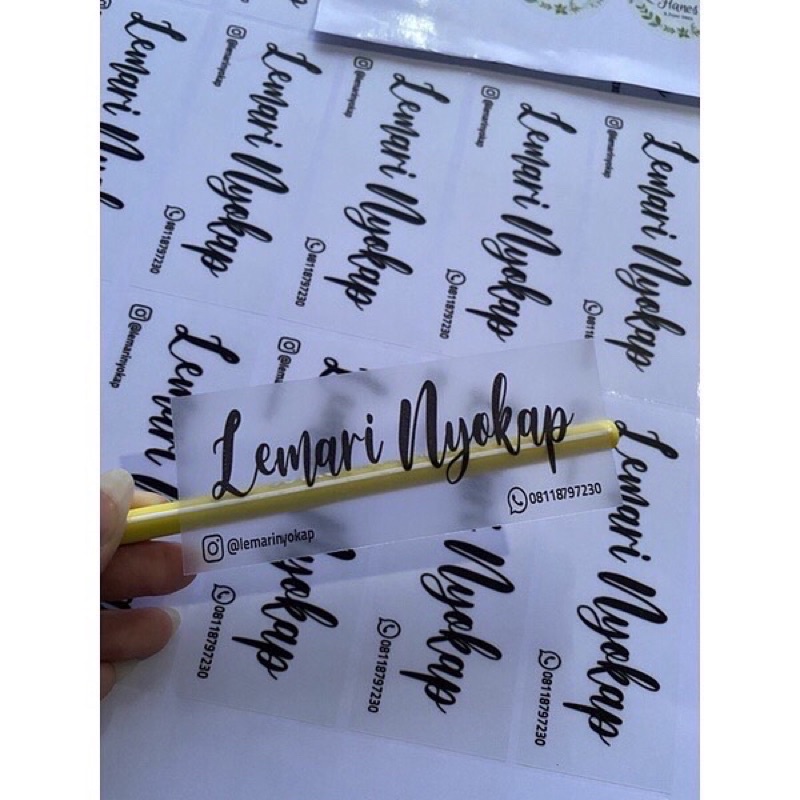 Hanes
Lemari Nyokap
@lemarinyokap
08118797230
Lemari Nyokap
@lemarinyokap
08118797230
Lemari Nyokap
@lemarinyokap
08118797230
Lemari Nyokap
@lemarinyokap
08118797230
Lemari Nyokap
@lemarinyokap
Lemari Nyokap
08118797230
@lemarinyokap
@lemarinyokap
Nyokap
08118797230
Nyokap
08118797230
Lemari Nyokap
08118797230